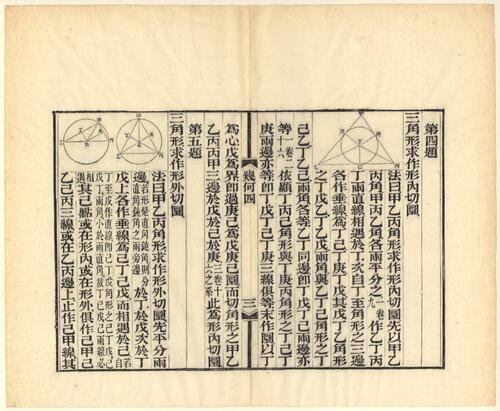 第四題
三角形求作形內切圜
法曰甲乙丙角形求作形內切圜先以甲乙
丙角甲丙乙角各兩平分之一卷九作乙丁丙
丁兩直線相遇於丁次自丁至角形之三邊
各作垂線為丁己丁庚丁戊其戊丁乙角形
之丁戊乙丁乙戊兩角與乙丁己角形之丁
己乙丁乙己兩角各等乙丁同邊即丁戊丁己兩邊亦
等一卷二十六依顯丁丙己角形與丁庚丙角形之丁己丁
庚兩邊亦等即丁戊丁己丁庚三線俱等末作圜以丁
幾何四
三
為心戊為界即過庚己為戊庚己圜而切角形之甲乙
乙丙丙甲三邊於戊於己於庚三卷十六之系此為形內切圜
第五題
三角形求作形外切圜
法曰甲乙丙角形求作形外切圜先平分兩
邊若形是直角鈍角則分直角鈍角之兩旁邊於丁於戊次於丁
戊上各作垂線為己丁己戊而相遇於己自
丁至戊作直線即己丁戊角形之己丁戊己
戊丁兩角小於兩直角故丁己戊己兩線必
相遇其己點或在形內或在形外俱作己甲己
乙己丙三線或在乙丙邊上止作己甲線其